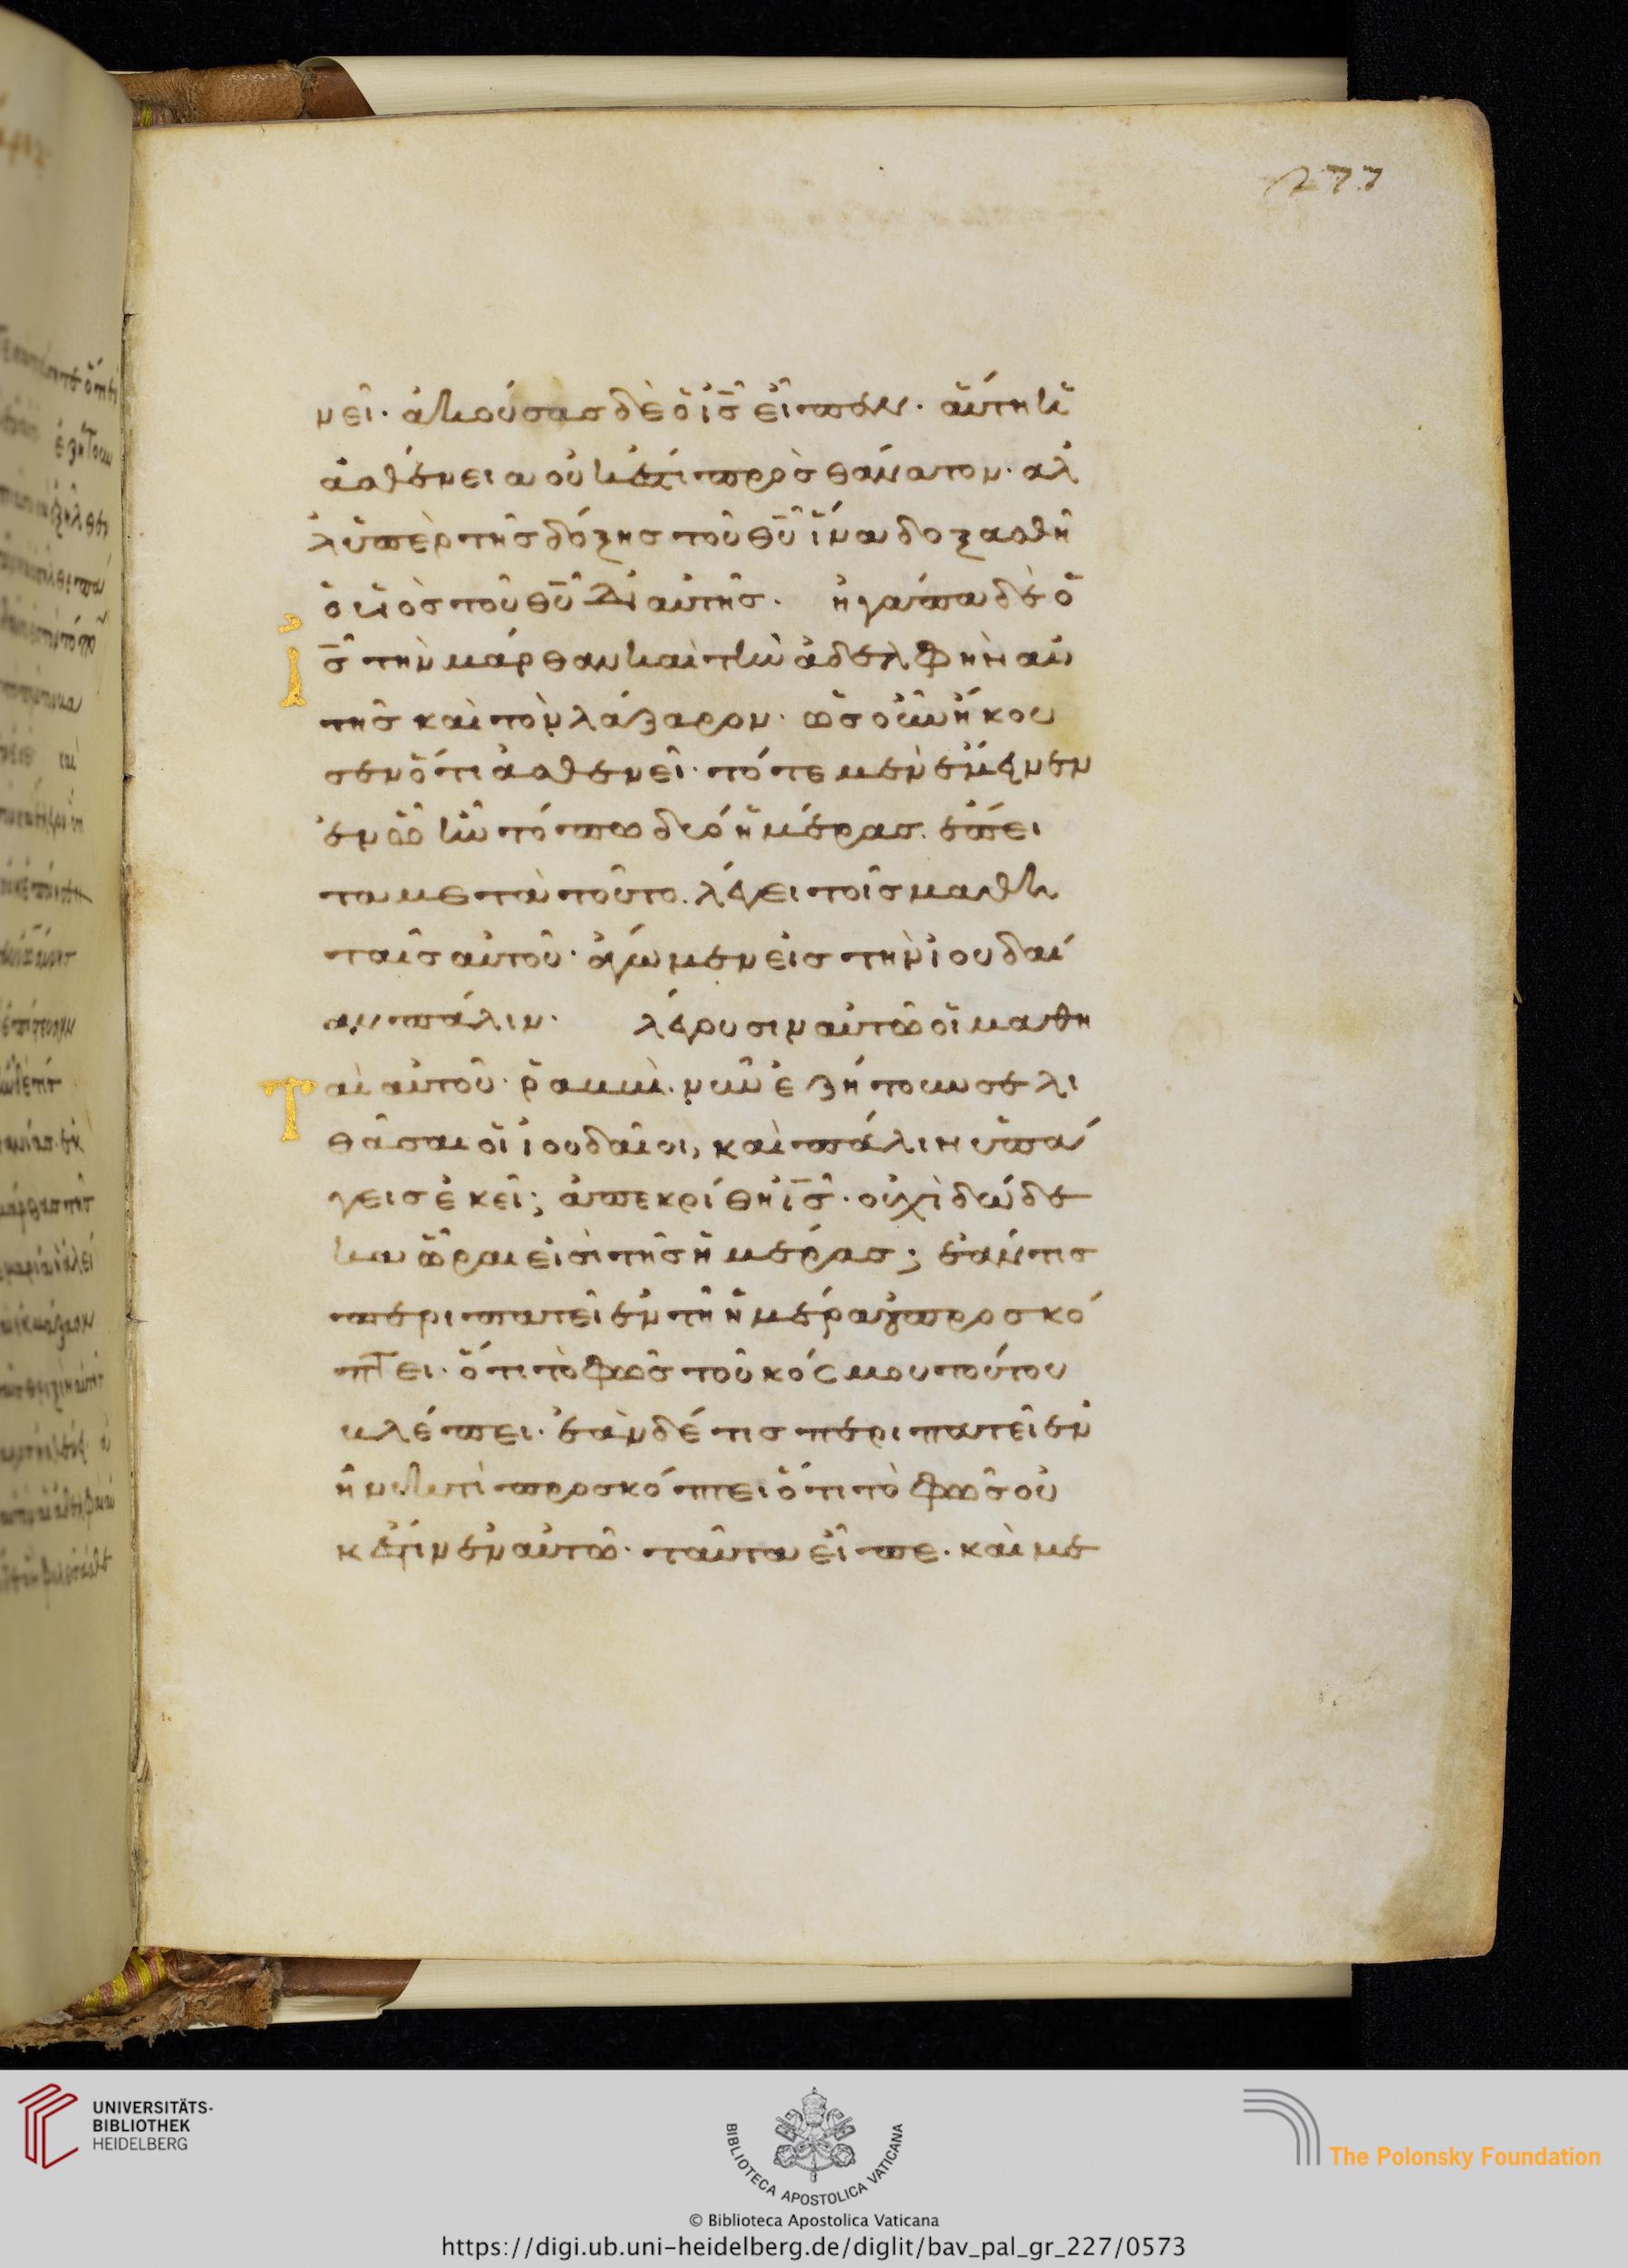 277
νεῖ· ἀκούσας δὲ ὁ ι̅ς̅ εἶπεν· αὕτη ἡ
ἀσθένεια οὐκ ἔστι πρὸς θάνατον· αλ
λ' ὑπὲρ τῆς δόξης τοῦ θ̅υ̅ ἵνα δοξασθῆ
ὁ υἱὸς τοῦ θ̅υ̅ δι' αὐτῆς· ἠγάπα δὲ ὁ
ι̅ς̅ τὴν μάρθαν καὶ τὴν ἀδελφὴν αὐ
τῆς καὶ τὸν λάζαρον· ὡς οὖν ἤκου
σεν ὅτι ἀσθενεῖ· τότε μὲν ἔμεινεν
ἐν ὧ ἦν τόπω δύο ἡμέρας· ἔπει
τα μετὰ τοῦτο· λέγει τοῖς μαθη
ταῖς αὐτοῦ· ἄγωμεν εἰς τὴν ἰουδαί
αν πάλιν· λέγουσιν αὐτῶ οἱ μαθη
Ταὶ αὐτοῦ· ῥαββὶ· νῦν ἐζήτουν σε λι
θᾶσαι οἱ ἰουδαῖοι, καὶ πάλιν ὑπά
γεις ἐκεῖ; ἀπεκρίθη ι̅ς̅· οὐχὶ δώδε
κα ὧραι εἰσὶ τῆς ἡμέρας; ἐάν τις
περιπατεῖ ἐν τῆ ἡμέρα οὐ προσκό
πτει· ὅτι τὸ φῶς τοῦ κόσμου τούτου
βλέπει· ἐὰν δέ τις περιπατεῖ ἐν
τῆ νυκτὶ προσκόπτει ὅτι τὸ φῶς οὐ
κ ἔστιν ἐν αὐτῶ· ταῦτα εἶπε· καὶ με
UNIVERSITÄTS-
BIBLIOTHEK
HEIDELBERG
BIBLIOTECA APOSTOLICA VATICANA
The Polonsky Foundation
© Biblioteca Apostolica Vaticana
https://digi.ub.uni-heidelberg.de/diglit/bav_pal_gr_227/0573